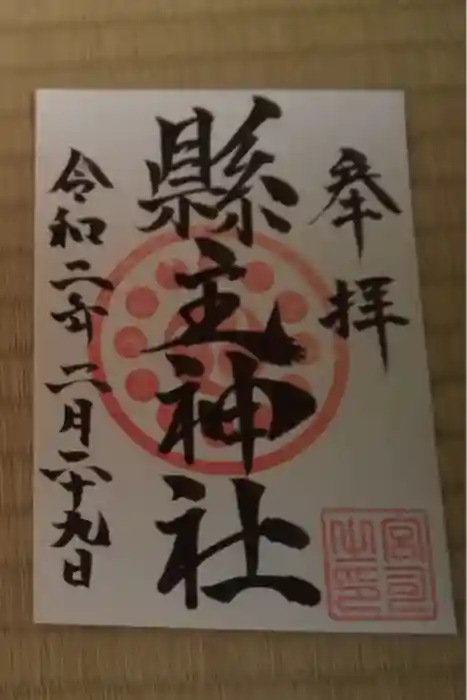 奉拝
縣主神社
令和二年二月二十九日
宮司之印